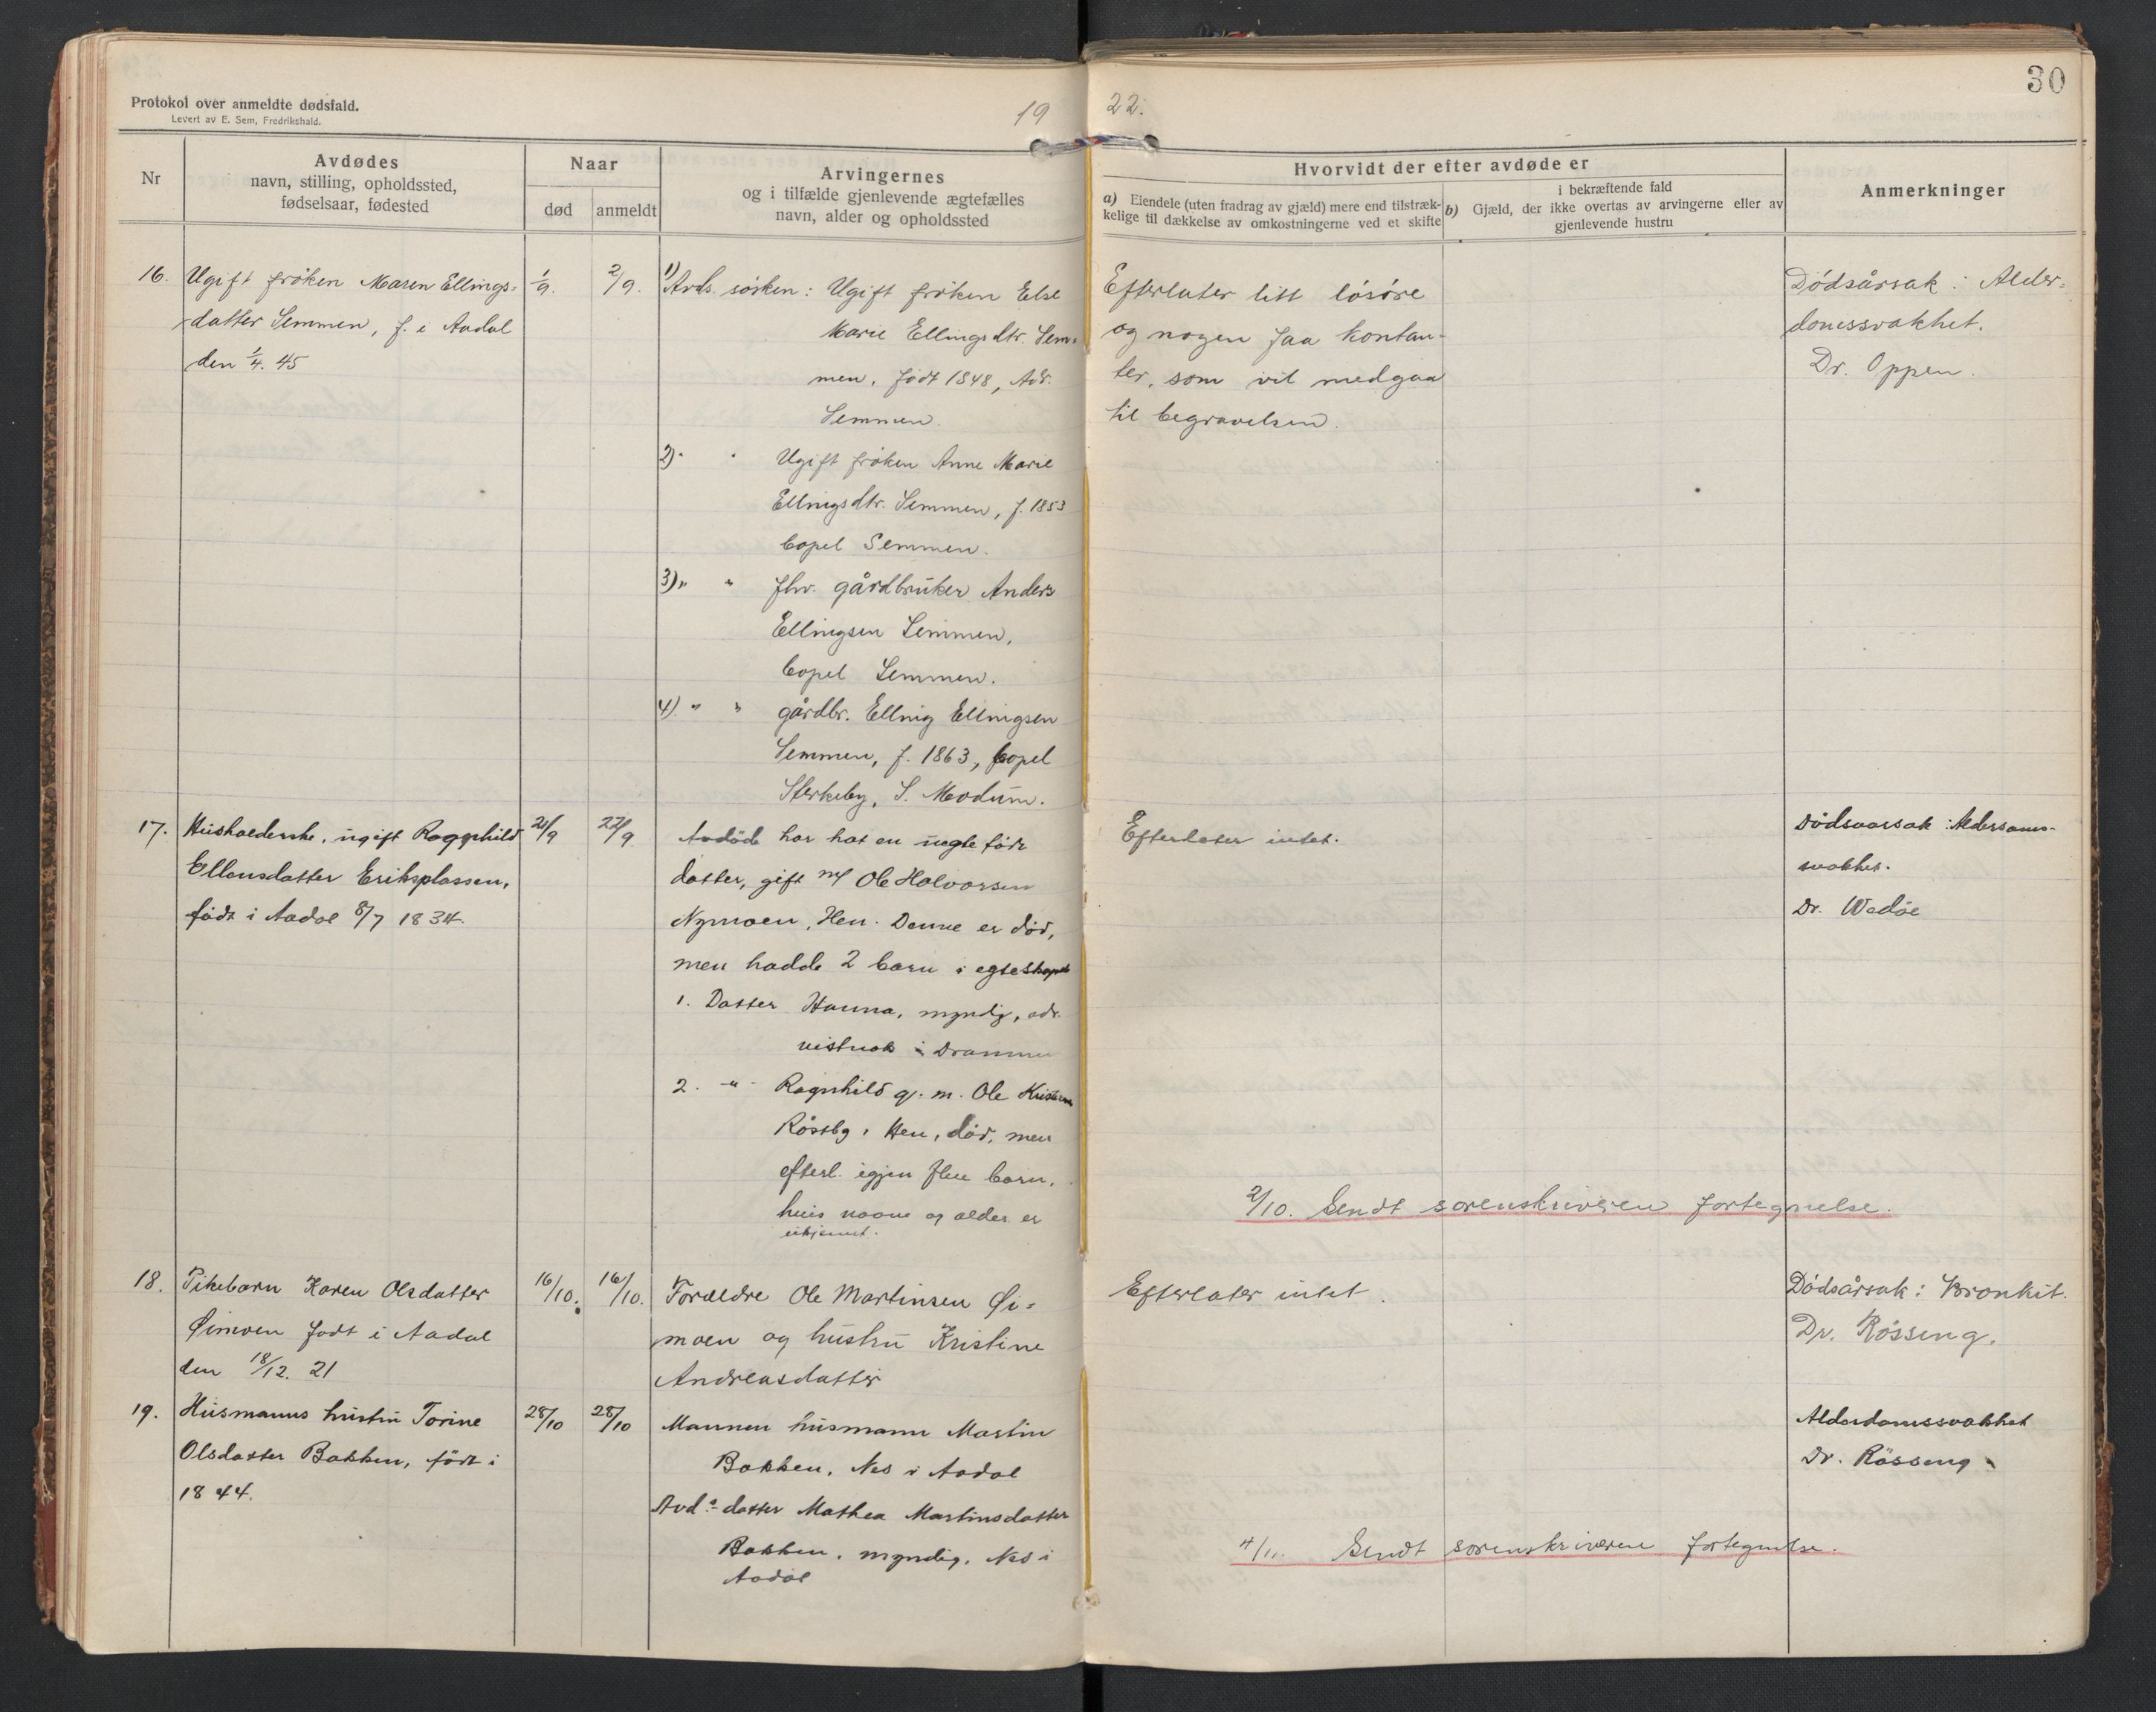 30
Protokol over anmeldte dødsfald.
Levert av E. Sem, Fredrikshald.
19 22.
Nr
Avdødes
navn, stilling, opholdssted,
fødselsaar, fødested
Naar
død
anmeldt
Arvingernes
og i tilfælde gjenlevende ægtefælles
navn, alder og opholdssted
Hvorvidt der efter avdøde er
a) Eiendele (uten fradrag av gjæld) mere end tilstræk-
kelige til dækkelse av omkostningerne ved et skifte
i bekræftende fald
b) Gjæld, der ikke overtas av arvingerne eller av
gjenlevende hustru
Anmerkninger
16.
Ugift frøken Maren Ellings-
datter Semmen, f. i Aadal
den 1/4. 45
1/9.
2/9.
1) Avds. søsken: Ugift frøken Else
Marie Ellingsdtr. Sem-
men, født 1848, Adr.
Semmen.
2) " " Ugift frøken Anne Marie
Ellingsdtr. Semmen, f. 1853
bopel Semmen.
3) " " fhv. gårdbruker Anders
Ellingsen Semmen,
bopel Semmen.
4) " " gårdbr. Elling Ellingsen
Semmen, f. 1863, bopel
Sterkeby, S. Modum.
Efterlater litt løsøre
og nogen faa kontan-
ter, som vil medgaa
til begravelsen.
Dødsårsak: Alder-
domssvakhet.
Dr. Oppen.
17.
Husholderske, ugift Ragnhild
Ellensdatter Eriksplassen,
født i Aadal 8/7 1834.
21/9
22/9
Avdøde har hat en uegte født
datter, gift m/ Ole Halvorsen
Nymoen, Hen. Denne er død,
men hadde 2 barn i egteskapet
1. Datter Hanna, myndig, adr.
vistnok i Drammen
2. -"- Ragnhild g. m. Ole Kristensen
Røssby, Hen, død, men
efterl. igjen flere barn,
hvis navne og alder er
ukjent.
Efterlater intet.
Dødsaarsak: Alderdoms-
svakhet.
Dr. Wedøe
2/10. Sendt sorenskriveren fortegnelse.
18.
Pikebarn Karen Olsdatter
Øimoen født i Aadal
den 18/12. 21
16/10.
16/10.
Forældre Ole Martinsen Øi-
moen og hustru Kristine
Andreasdatter
Efterlater intet.
Dødsårsak: Bronkit.
Dr. Røsseng.
19.
Husmanns hustru Torine
Olsdatter Bakken, født i
1844.
28/10
28/10
Mannen husmann Martin
Bakken, Nes i Aadal
Avd.s datter Mathea Martinsdatter
Bakken, myndig, Nes i
Aadal
Alderdomssvakhet
Dr. Røsseng
4/11. Sendt sorenskriveren fortegnelse.